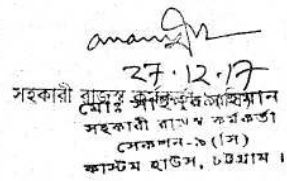 27.12.17
সহকারী রাজস্ব কর্মকর্তা
মোঃ
সহকারী রাজস্ব কর্মকর্তা
সেকশন-৯ (সি)
কাস্টম হাউস, চট্টগ্রাম।